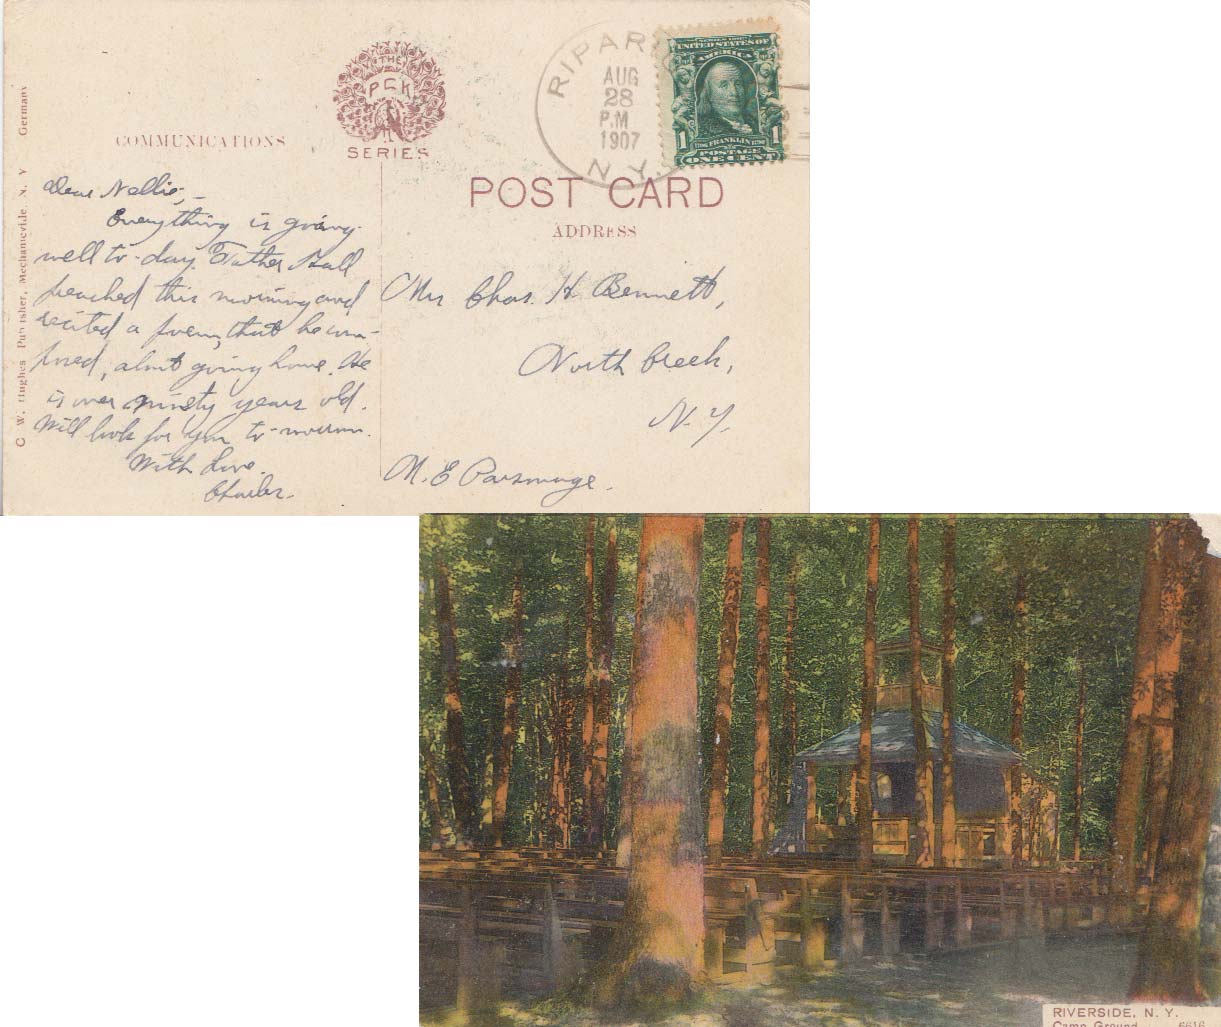 C. W. Hughes Publisher, Mechanicville, N. Y. Germany
COMMUNICATIONS
THE
PCK
SERIES
RIPARIUS
AUG
28
P.M
1907
N.Y.
SERIES 1902
UNITED STATES OF
AMERICA
1 1
1706 FRANKLIN 1790
POSTAGE
ONE CENT
POST CARD
ADDRESS
Dear Nellie,-
Everything is going
well to-day. Father Hall
preached this morning and
recited a poem, that he com-
posed, about going home. He
is over ninety years old.
Will look for you to-morrow.
With Love.
Charles.
Mrs Chas. H Bennett,
North Creek,
N. Y.
M. E Parsonage.
RIVERSIDE, N. Y.
Camp Ground 6616